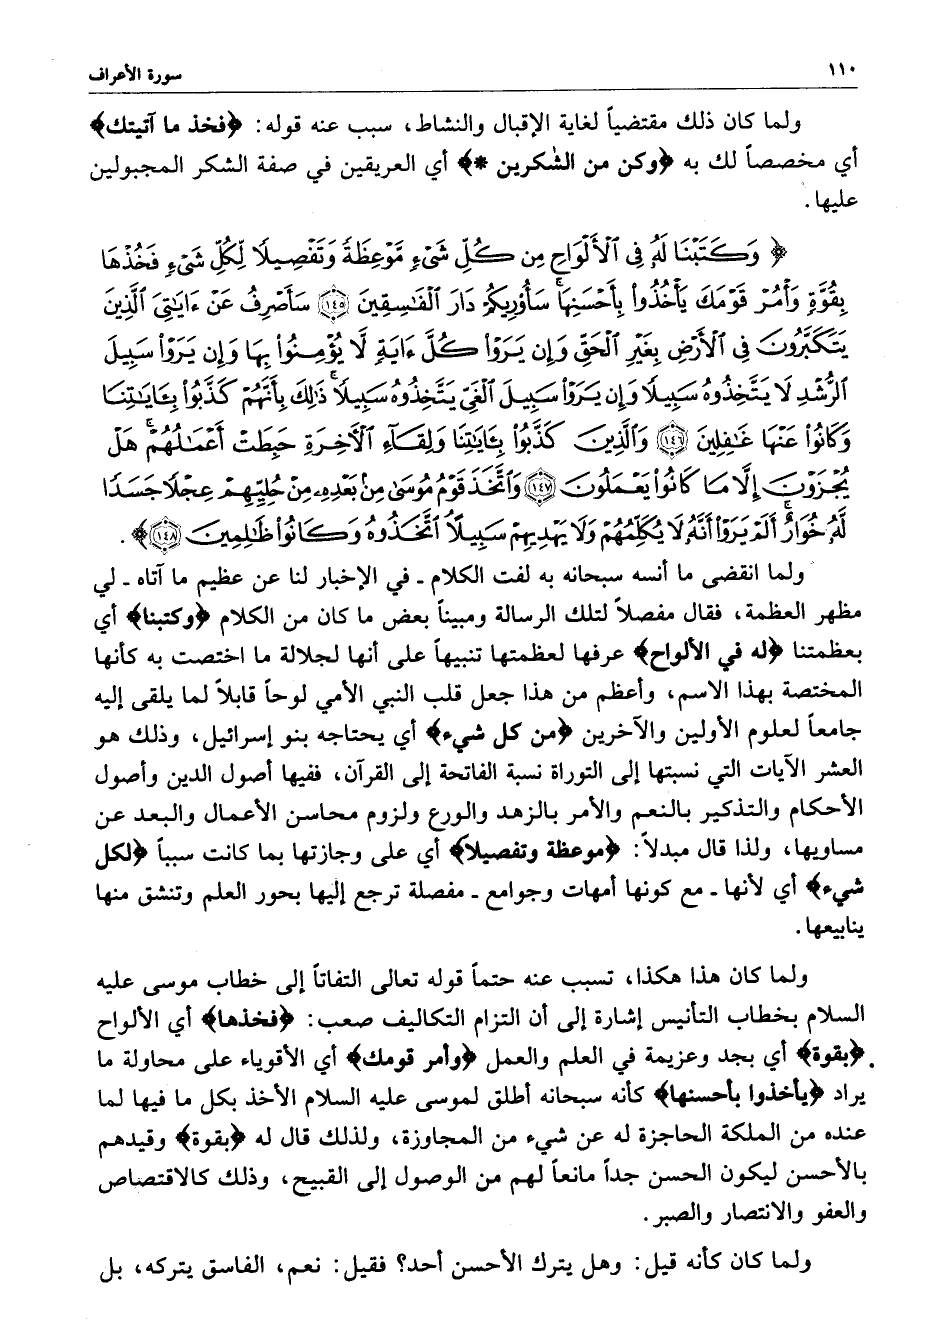 ١١٠ سورة الأعراف
ولما كان ذلك مقتضياً لغاية الإقبال والنشاط، سبب عنه قوله: ﴿فخذ ما آتيتك﴾
أي مخصصاً لك به ﴿وكن من الشٰكرين *﴾ أي العريقين في صفة الشكر المجبولين
عليها.
﴿ وَكَتَبْنَا لَهُۥ فِى ٱلْأَلْوَاحِ مِن كُلِّ شَىْءٍ مَّوْعِظَةً وَتَفْصِيلًا لِّكُلِّ شَىْءٍ فَخُذْهَا
بِقُوَّةٍ وَأْمُرْ قَوْمَكَ يَأْخُذُوا۟ بِأَحْسَنِهَا ۚ سَأُو۟رِيكُمْ دَارَ ٱلْفَـٰسِقِينَ ﴿١٤٥﴾ سَأَصْرِفُ عَنْ ءَايَـٰتِىَ ٱلَّذِينَ
يَتَكَبَّرُونَ فِى ٱلْأَرْضِ بِغَيْرِ ٱلْحَقِّ وَإِن يَرَوْا۟ كُلَّ ءَايَةٍ لَّا يُؤْمِنُوا۟ بِهَا وَإِن يَرَوْا۟ سَبِيلَ
ٱلرُّشْدِ لَا يَتَّخِذُوهُ سَبِيلًا وَإِن يَرَوْا۟ سَبِيلَ ٱلْغَىِّ يَتَّخِذُوهُ سَبِيلًا ۚ ذَٰلِكَ بِأَنَّهُمْ كَذَّبُوا۟ بِـَٔايَـٰتِنَا
وَكَانُوا۟ عَنْهَا غَـٰفِلِينَ ﴿١٤٦﴾ وَٱلَّذِينَ كَذَّبُوا۟ بِـَٔايَـٰتِنَا وَلِقَآءِ ٱلْـَٔاخِرَةِ حَبِطَتْ أَعْمَـٰلُهُمْ ۚ هَلْ
يُجْزَوْنَ إِلَّا مَا كَانُوا۟ يَعْمَلُونَ ﴿١٤٧﴾ وَٱتَّخَذَ قَوْمُ مُوسَىٰ مِنۢ بَعْدِهِۦ مِنْ حُلِيِّهِمْ عِجْلًا جَسَدًا
لَّهُۥ خُوَارٌ ۚ أَلَمْ يَرَوْا۟ أَنَّهُۥ لَا يُكَلِّمُهُمْ وَلَا يَهْدِيهِمْ سَبِيلًا ۘ ٱتَّخَذُوهُ وَكَانُوا۟ ظَـٰلِمِينَ ﴿١٤٨﴾ ﴾.
ولما انقضى ما أنسه سبحانه به لفت الكلام ـ في الإخبار لنا عن عظيم ما آتاه ـ لي
مظهر العظمة، فقال مفصلاً لتلك الرسالة ومبيناً بعض ما كان من الكلام ﴿وكتبنا﴾ أي
بعظمتنا ﴿له في الألواح﴾ عرفها لعظمتها تنبيهاً على أنها لجلالة ما اختصت به كأنها
المختصة بهذا الاسم، وأعظم من هذا جعل قلب النبي الأمي لوحاً قابلاً لما يلقى إليه
جامعاً لعلوم الأولين والآخرين ﴿من كل شيء﴾ أي يحتاجه بنو إسرائيل، وذلك هو
العشر الآيات التي نسبتها إلى التوراة نسبة الفاتحة إلى القرآن، ففيها أصول الدين وأصول
الأحكام والتذكير بالنعم والأمر بالزهد والورع ولزوم محاسن الأعمال والبعد عن
مساويها، ولذا قال مبدلاً: ﴿موعظة وتفصيلا﴾ أي على وجازتها بما كانت سبباً ﴿لكل
شيء﴾ أي لأنها ـ مع كونها أمهات وجوامع ـ مفصلة ترجع إليها بحور العلم وتنشق منها
ينابيعها.
ولما كان هذا هكذا، تسبب عنه حتماً قوله تعالى التفاتاً إلى خطاب موسى عليه
السلام بخطاب التأنيس إشارة إلى أن التزام التكاليف صعب: ﴿فخذها﴾ أي الألواح
﴿بقوة﴾ أي بجد وعزيمة في العلم والعمل ﴿وأمر قومك﴾ أي الأقوياء على محاولة ما
يراد ﴿يأخذوا بأحسنها﴾ كأنه سبحانه أطلق لموسى عليه السلام الأخذ بكل ما فيها لما
عنده من الملكة الحاجزة له عن شيء من المجاوزة، ولذلك قال له ﴿بقوة﴾ وقيدهم
بالأحسن ليكون الحسن جداً مانعاً لهم من الوصول إلى القبيح، وذلك كالاقتصاص
والعفو والانتصار والصبر.
ولما كان كأنه قيل: وهل يترك الأحسن أحد؟ فقيل: نعم، الفاسق يتركه، بل